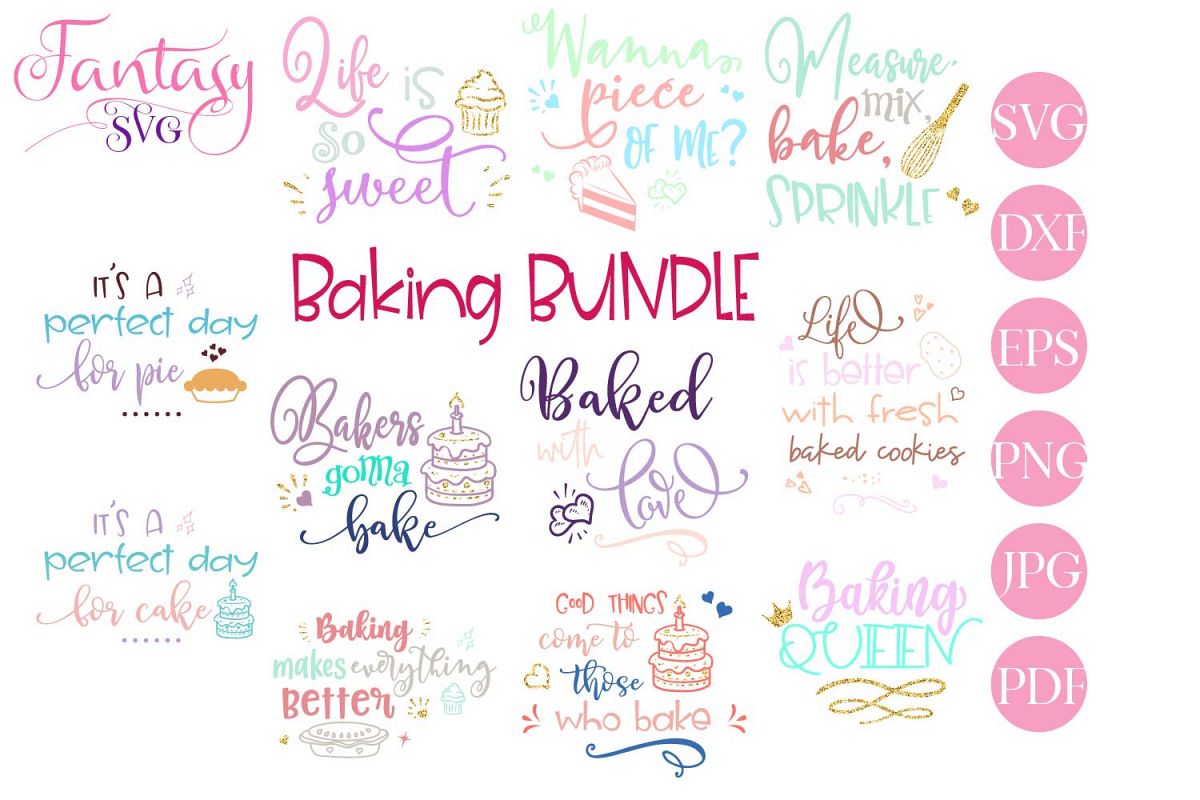 Fantasy
SVG
Life is
so
sweet
Wanna
piece
OF ME?
Measure
mix,
bake,
SPRINKLE
SVG
DXF
EPS
PNG
JPG
PDF
Baking BUNDLE
IT'S A
perfect day
for pie
Bakers
gonna
bake
Baked
with
love
Life
is better
with fresh
baked cookies
IT'S A
perfect day
for cake
Baking
makes everything
Better
GOOD THINGS
come to
those
who bake
Baking
QUEEN